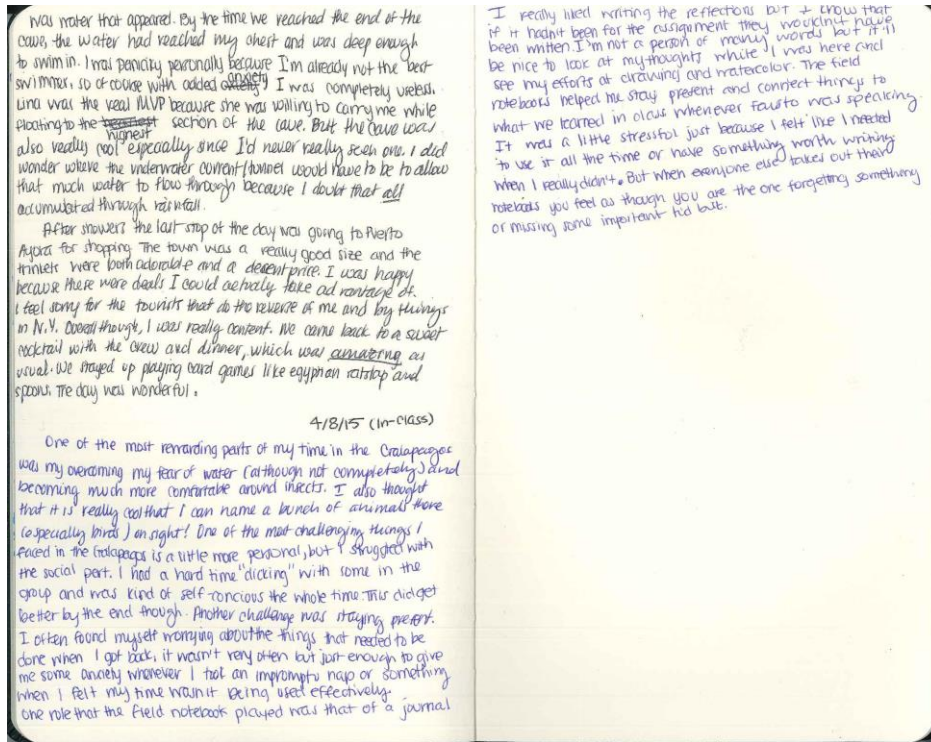 was water that appeared. By the time we reached the end of the
cave, the water had reached my chest and was deep enough
to swim in. I was panicity personally because I'm already not the best
swimmer, so of course with added anxiety I was completely useless.
Lina was the real MVP because she was willing to carry me while
floating to the highest section of the cave. But the cave was
also really cool especially since I'd never really seen one. I did
wonder where the underwater current/tunnel would have to be to allow
that much water to flow through because I doubt that all
accumulated through rainfall.
After showers the last stop of the day was going to Puerto
Ayora for shopping. The town was a really good size and the
trinkets were both adorable and a decent price. I was happy
because these were deals I could actually take advantage of.
I feel sorry for the tourists that do the reverse of me and by things
in N.Y. Overall though, I was really content. We came back to a sweet
cocktail with the crew and dinner, which was amazing as
usual. We stayed up playing card games like egyptian ratslap and
spoons. The day was wonderful.
4/8/15 (In-class)
One of the most rewarding parts of my time in the Galapagos
was my overcoming my fear of water (although not completely) and
becoming much more comfortable around insects. I also thought
that it is really cool that I can name a bunch of animals there
(especially birds) on sight! One of the most challenging things I
faced in the Galapagos is a little more personal, but I struggled with
the social part. I had a hard time "clicking" with some in the
group and was kind of self-concious the whole time. This did get
better by the end though. Another challenge was staying present.
I often found myself worrying about the things that needed to be
done when I got back, it wasn't very often but just enough to give
me some anxiety whenever I took an impromptu nap or something
when I felt my time wasn't being used effectively.
One role that the field notebook played was that of a journal
I really liked writing the reflections but I know that
if it hadn't been for the assignment they wouldn't have
been written. I'm not a person of many words but it'll
be nice to look at my thoughts while I was here and
see my efforts at drawing and watercolor. The field
notebooks helped me stay present and connect things to
what we learned in class whenever fausto was speaking.
It was a little stressful just because I felt like I needed
to use it all the time or have something worth writing
when I really didn't. But when everyone else takes out their
notebooks you feel as though you are the one forgetting something
or missing some important tid bit.